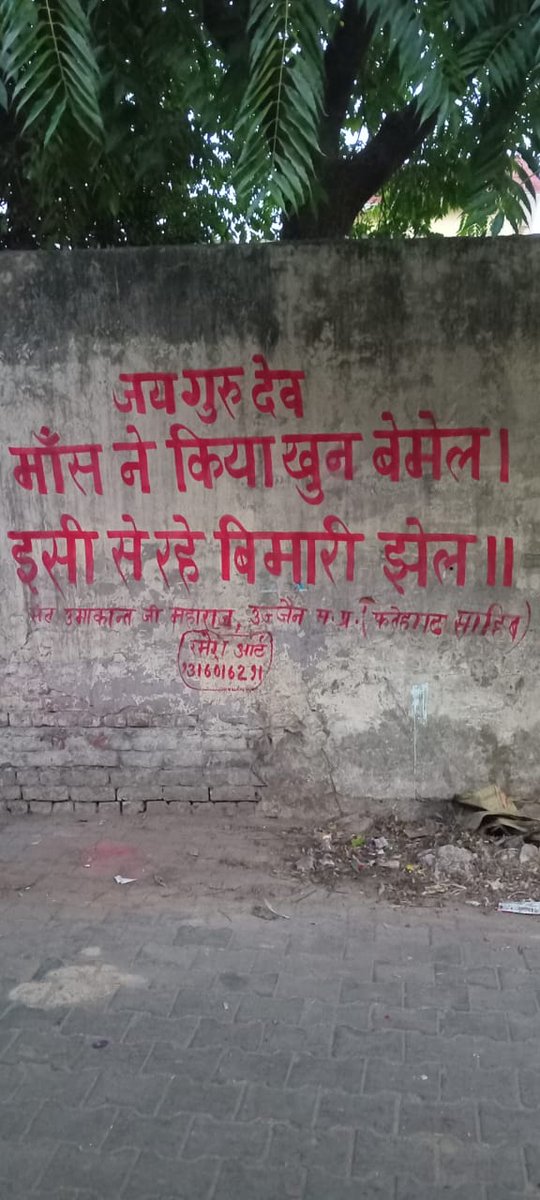 जय गुरु देव
माँस ने किया खुन बेमेल।
इसी से रहे बिमारी झेल॥
संत उमाकान्त जी महाराज, उज्जैन म.प्र. (फतेहगढ साहिब)
रमेश आर्ट
9316016291